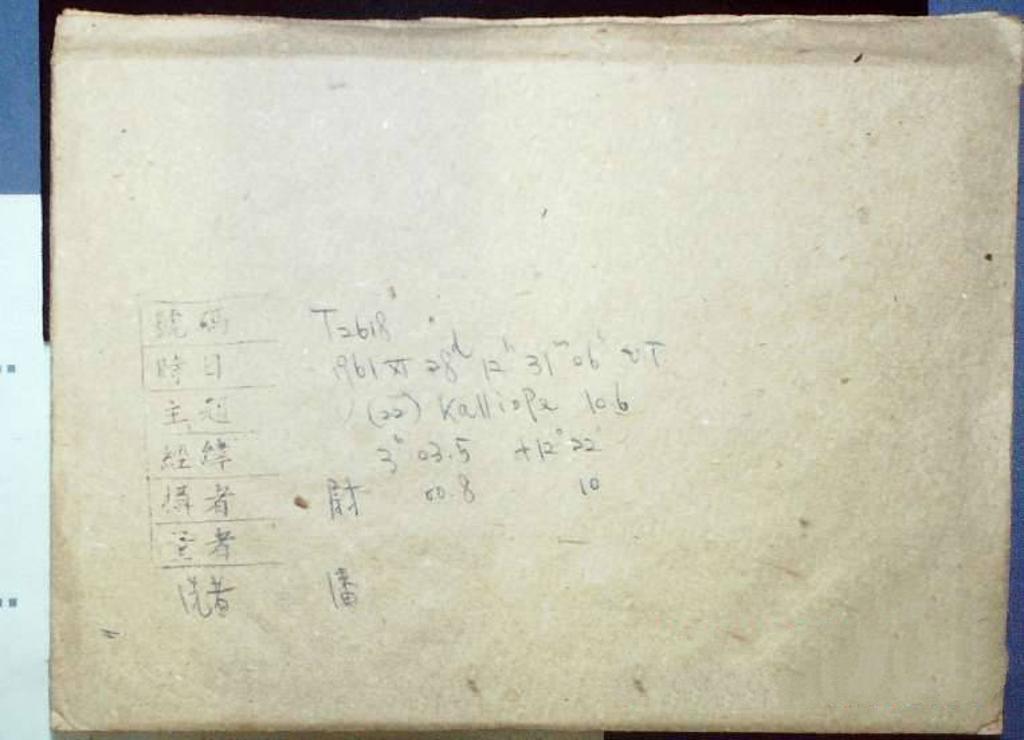 號碼 T2618
時日 1961 XI 28d 12h 31m 06s UT
主題 (22) Kalliope 10.6
經緯 3h 03.5 +12° 22'
攝者 尉 00.8 10
者
洗者 潘